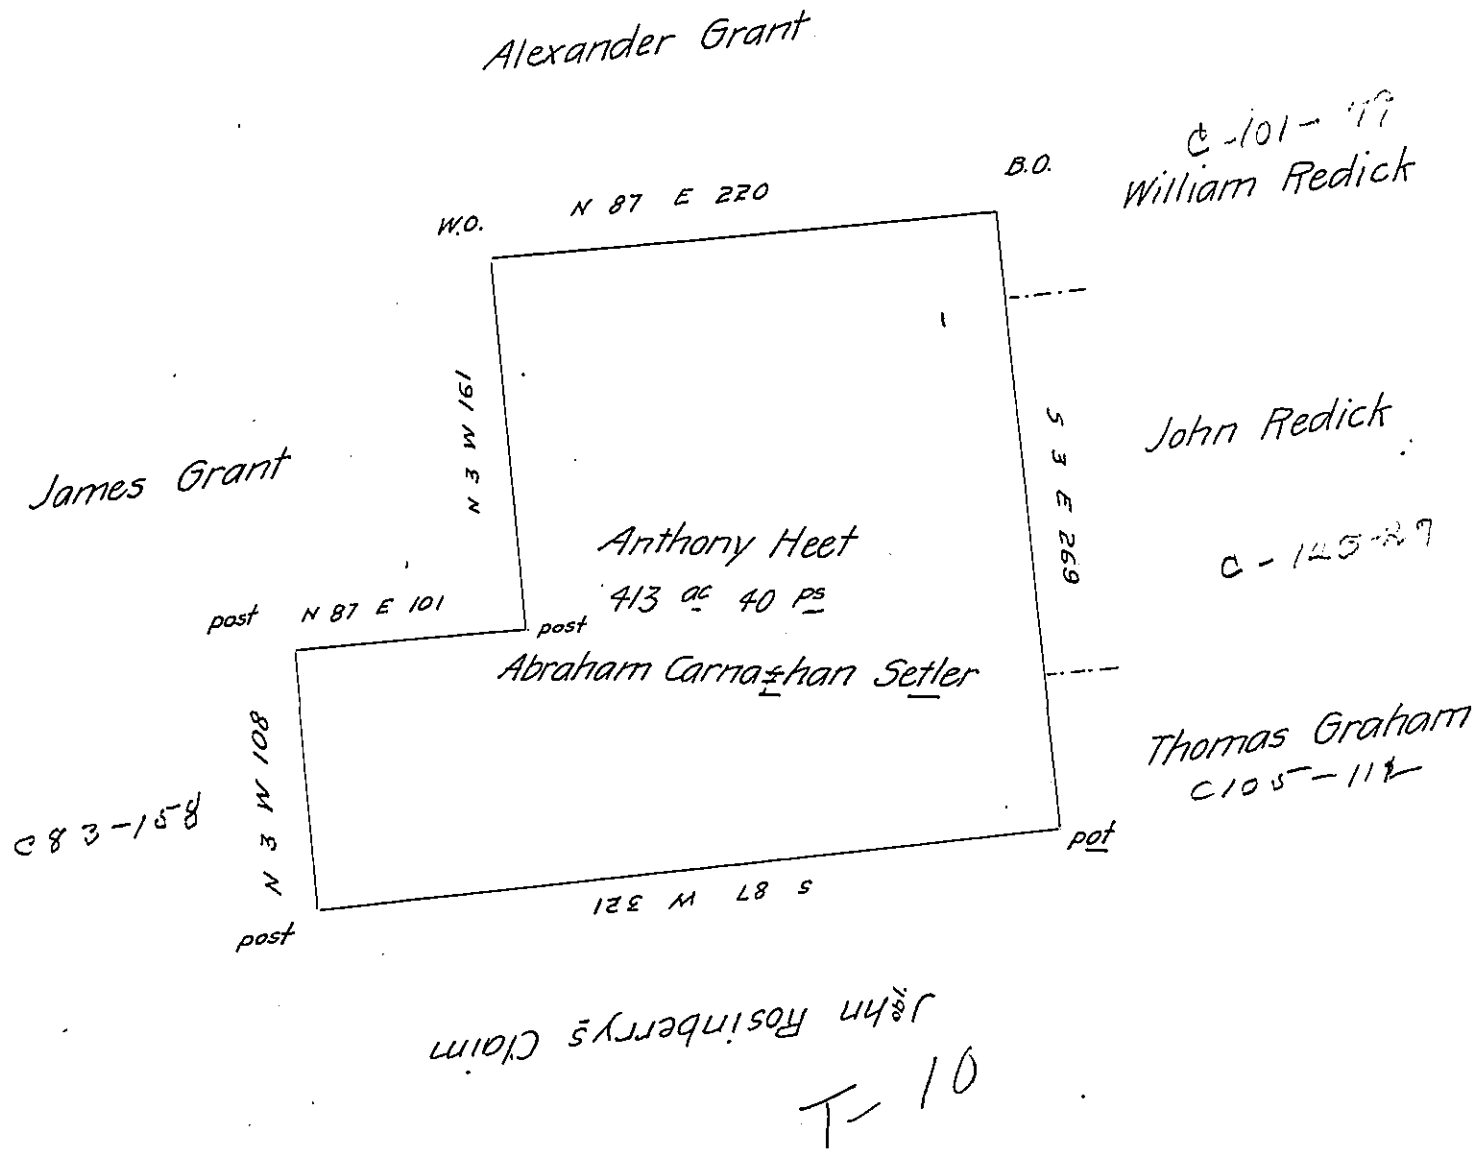 Alexander Grant
C-101-
William Redick
B.O.
W.O.
N 87 E 220
N 3 W 161
S 3 E 269
John Redick
James Grant
C-145-27
Anthony Heet
413 ac 40 ps
post
N 87 E 101
post
Abraham Carnaghan Setler
N 3 W 108
Thomas Graham
C105-112
C83-158
pot
S 87 W 321
post
John Rosinberrys Claim
T-10